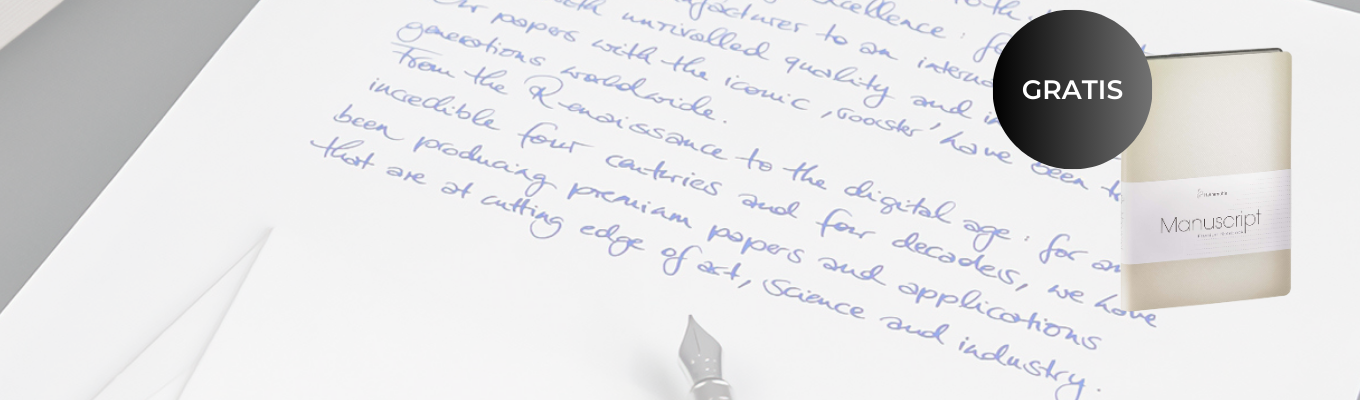 excellence :
manufacturer to an
with unrivalled quality and
Our papers with the iconic 'rooster' have been
generations worldwide.
From the Renaissance to the digital age : for an
incredible four centuries and four decades, we have
been producing premium papers and applications
that are at cutting edge of art, science and industry.
GRATIS
Manuscript